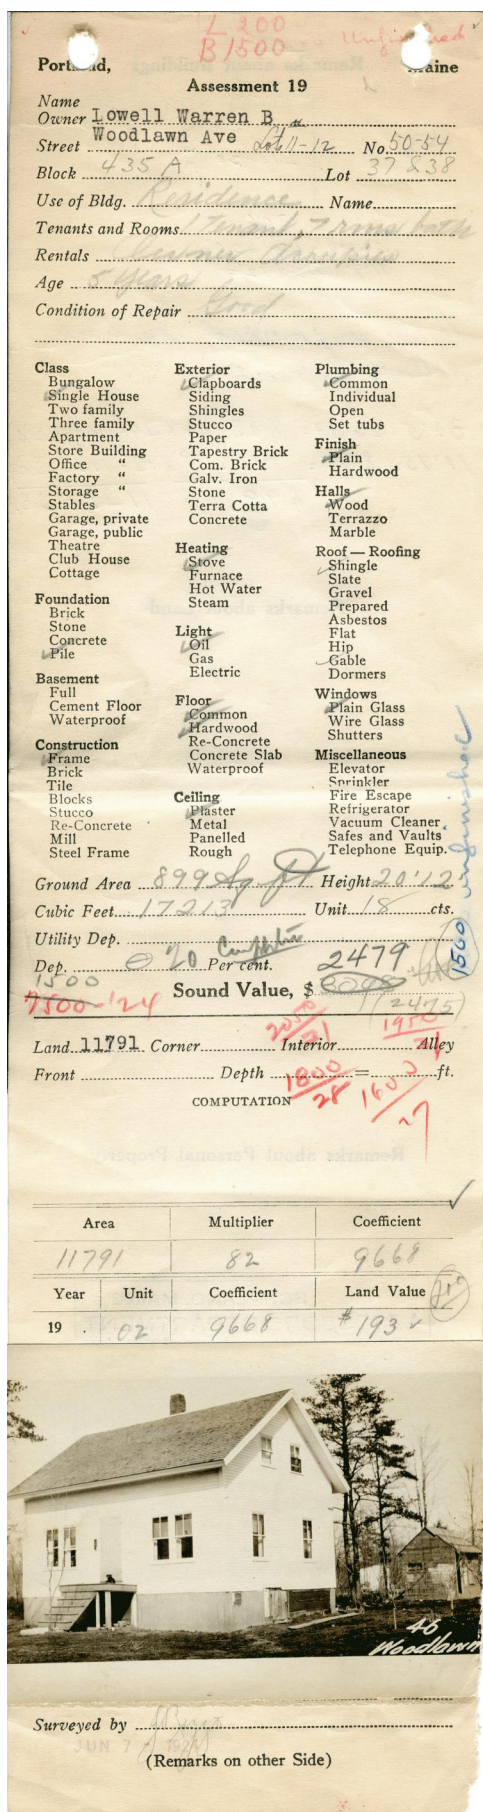 L 200
B 1500
Unfinished
Portland, Maine
Assessment 19
Name
Owner Lowell Warren B
Street Woodlawn Ave Lot 11-12 No 50-54
Block 435 A Lot 37 & 38
Use of Bldg. Residence Name
Tenants and Rooms 1 tenant, 7 rms bath
Rentals Owner Occupies
Age 5 years
Condition of Repair Good
Class
Bungalow
Single House
Two family
Three family
Apartment
Store Building
Office "
Factory "
Storage "
Stables
Garage, private
Garage, public
Theatre
Club House
Cottage
Foundation
Brick
Stone
Concrete
Pile
Basement
Full
Cement Floor
Waterproof
Construction
Frame
Brick
Tile
Blocks
Stucco
Re-Concrete
Mill
Steel Frame
Exterior
Clapboards
Siding
Shingles
Stucco
Paper
Tapestry Brick
Com. Brick
Galv. Iron
Stone
Terra Cotta
Concrete
Heating
Stove
Furnace
Hot Water
Steam
Light
Oil
Gas
Electric
Floor
Common
Hardwood
Re-Concrete
Concrete Slab
Waterproof
Ceiling
Plaster
Metal
Panelled
Rough
Plumbing
Common
Individual
Open
Set tubs
Finish
Plain
Hardwood
Halls
Wood
Terrazzo
Marble
Roof — Roofing
Shingle
Slate
Gravel
Prepared
Asbestos
Flat
Hip
Gable
Dormers
Windows
Plain Glass
Wire Glass
Shutters
Miscellaneous
Elevator
Sprinkler
Fire Escape
Refrigerator
Vacuum Cleaner
Safes and Vaults
Telephone Equip.
1500 unfinished
Ground Area 899 Sq ft Height 20'12
Cubic Feet 17213 Unit 18 cts.
Utility Dep.
Dep. 20 Per cent. 2479
1500
7500-'24 Sound Value, $ (2475)
2050 1950
Land 11791 Corner Interior Alley
Front Depth = ft.
1800/28 1600/27
COMPUTATION
Area Multiplier Coefficient
11791 82 9668
Year Unit Coefficient Land Value
19 . 02 9668 $193
46
Woodlawn
Surveyed by
JUN 7 - 1924
(Remarks on other Side)